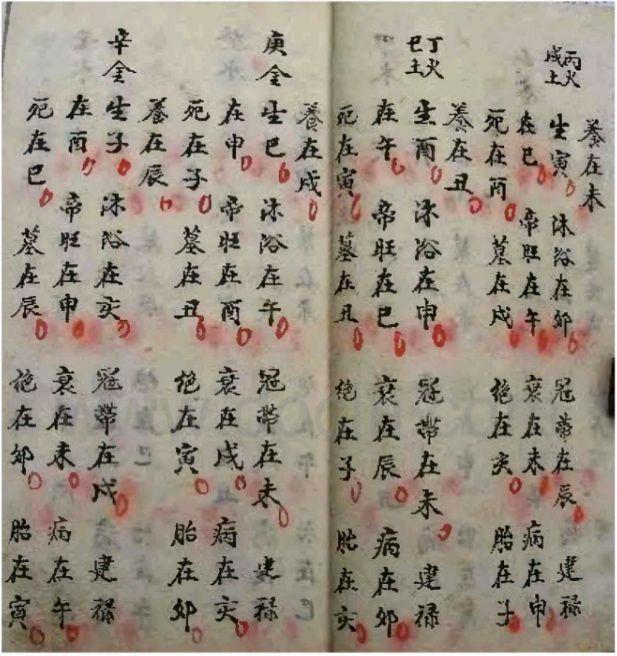 養在未
丙火
戊土
生寅 沐浴在卯 冠帶在辰 建祿
在巳 帝旺在午 衰在未 病在申
死在酉 墓在戌 絕在亥 胎在子
養在丑
丁火
己土
生酉 沐浴在申 冠帶在未 建祿
在午 帝旺在巳 衰在辰 病在卯
死在寅 墓在丑 絕在子 胎在亥
養在戌
庚金
生巳 沐浴在午 冠帶在未 建祿
在申 帝旺在酉 衰在戌 病在亥
死在子 墓在丑 絕在寅 胎在卯
養在辰
辛金
生子 沐浴在亥 冠帶在戌 建祿
在酉 帝旺在申 衰在未 病在午
死在巳 墓在辰 絕在卯 胎在寅